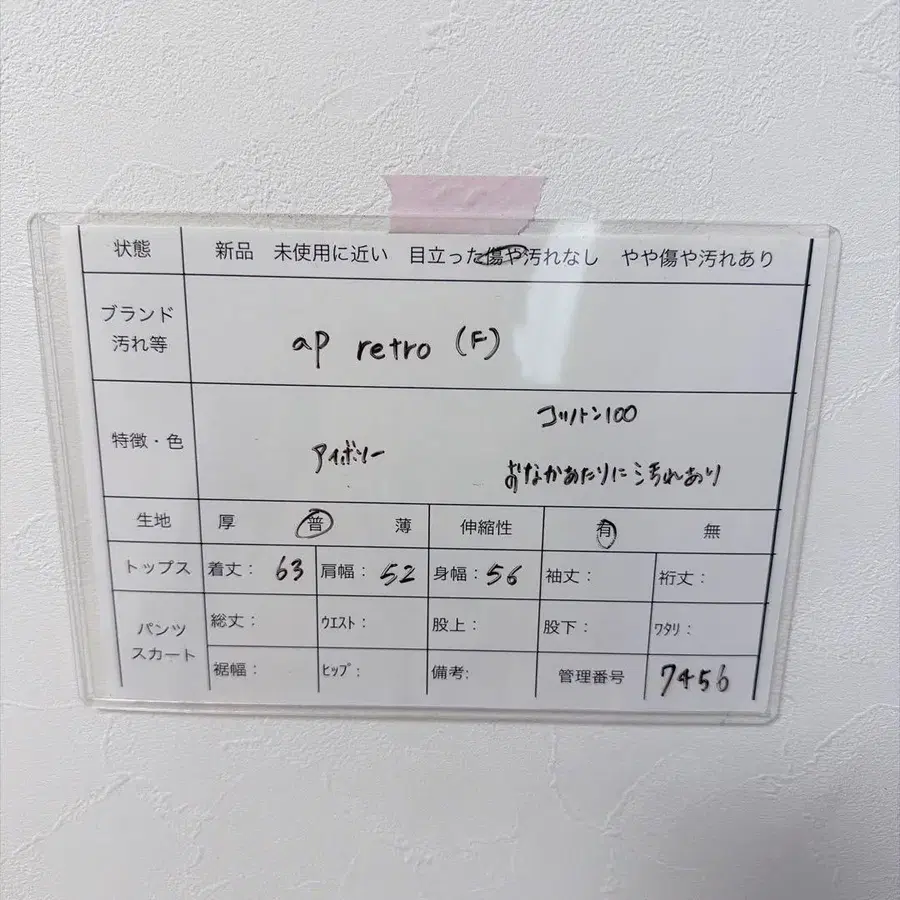 状態 新品 未使用に近い 目立った傷や汚れなし やや傷や汚れあり
ブランド
汚れ等
ap retro (F)
特徴・色
アイボリー
コットン100
おなかあたりに汚れあり
生地 厚 普 薄 伸縮性 有 無
トップス 着丈: 63 肩幅: 52 身幅: 56 袖丈: 裄丈:
パンツ
スカート
総丈: ウエスト: 股上: 股下: ワタリ:
裾幅: ヒップ: 備考: 管理番号 7456